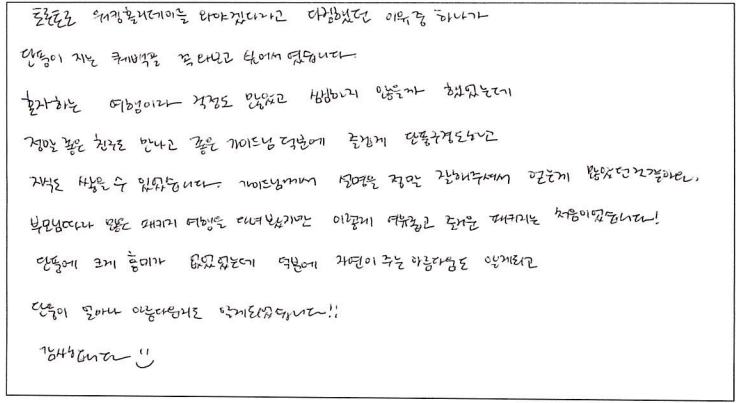 토론토로 워킹홀리데이를 와야겠다라고 다짐했던 이유중 하나가
단풍이 지는 퀘백을 꼭 와보고 싶어서 였습니다.
혼자하는 여행이라 걱정도 많았고 쌤쌤하지 않을까 했었는데
정말 좋은 친구도 만나고 좋은 가이드님 덕분에 즐겁게 단풍구경도하고
지식도 쌓을 수 있었습니다. 가이드님께서 설명을 정말 잘해주셔서 얻는게 많았던것같아요.
부모님따라 많은 패키지 여행을 다녀봤지만 이렇게 여유롭고 즐거운 패키지는 처음이었습니다!
단풍에 크게 흥미가 없었었는데 덕분에 자연이 주는 아름다움도 알게되고
단풍이 얼마나 아름다운지도 알게되었습니다!!
감사합니다 :)